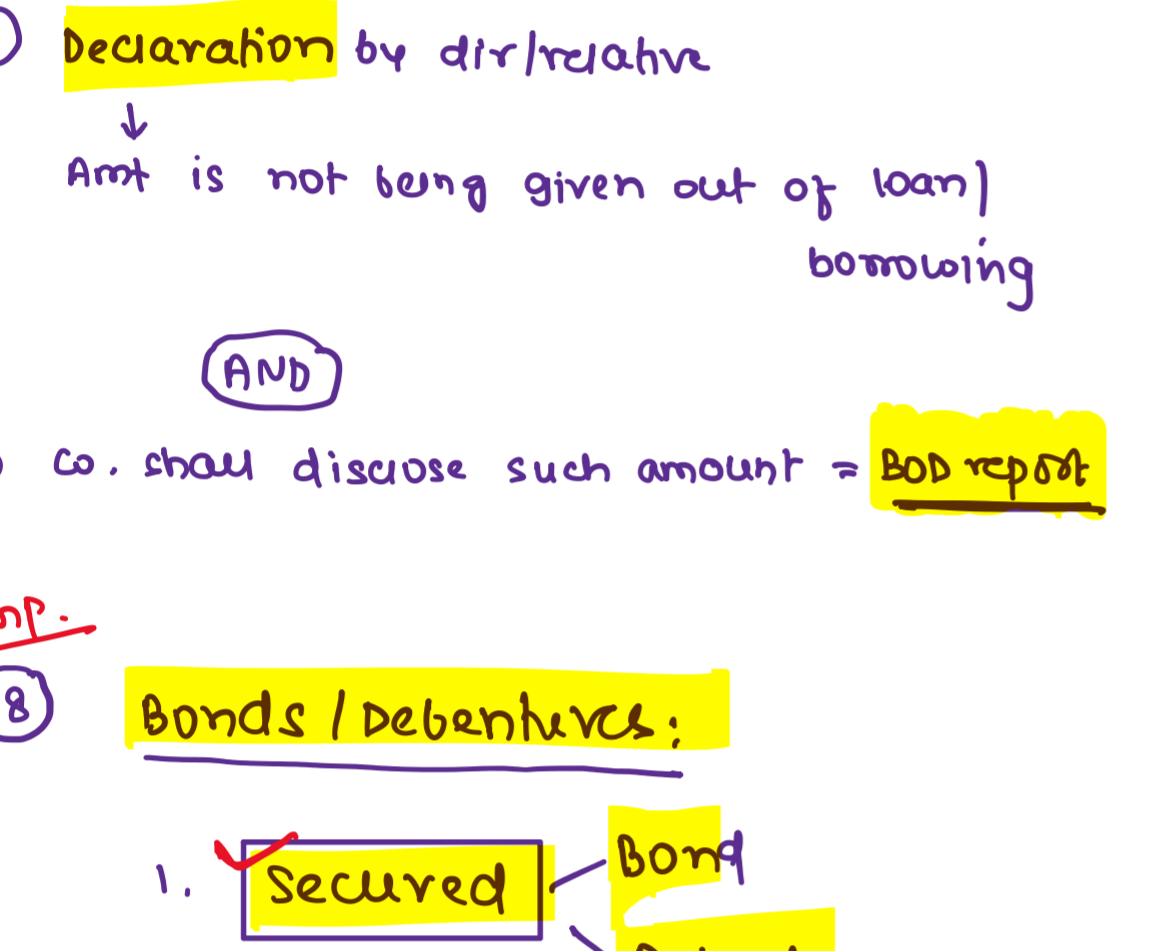 Declaration by dir/relative
↓
Amt is not being given out of loan/
borrowing
AND
co. shall disclose such amount = BOD report
mp.
8 Bonds / Debentures:
1. Secured
Bond